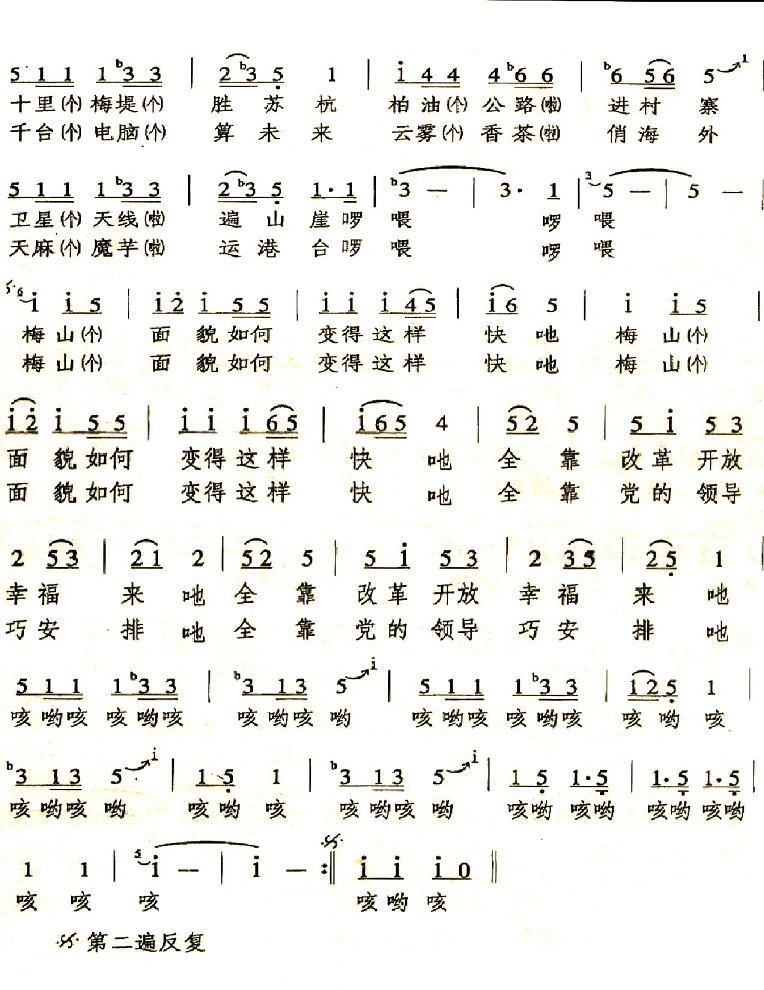 5 1 1 1 ♭3 3 | 2 ♭3 5 1 | i 4 4 4 ♭6 6 | ♭6 5 6 5 ↗1 |
十里(个)梅堤(个) 胜苏杭 柏油(个)公路(啦) 进村寨
千台(个)电脑(个) 算未来 云雾(个)香茶(啦) 俏海外
5 1 1 1 ♭3 3 | 2 ♭3 5 1· 1 | ♭3 — | 3· 1 | 3 5 — | 5 — |
卫星(个)天线(啦) 遍山崖啰 喂 啰 喂
天麻(个)魔芋(啦) 运港台啰 喂 啰 喂
i i 5 | i 2 i 5 5 | i i i 4 5 | i 6 5 | i i 5 |
梅山(个) 面貌如何 变得这样 快吔 梅山(个)
梅山(个) 面貌如何 变得这样 快吔 梅山(个)
i 2 i 5 5 | i i i 6 5 | i 6 5 4 | 5 2 5 | 5 i 5 3 |
面貌如何 变得这样 快吔 全靠 改革开放
面貌如何 变得这样 快吔 全靠 党的领导
2 5 3 | 2 1 2 | 5 2 5 | 5 i 5 3 | 2 3 5 | 2 5 1 |
幸福 来吔 全靠 改革开放 幸福 来吔
巧安 排吔 全靠 党的领导 巧安 排吔
5 1 1 1 ♭3 3 | ♭3 1 3 5 ↗i | 5 1 1 1 ♭3 3 | 1 2 5 1 |
咳哟咳 咳哟咳 咳哟咳 哟 咳哟咳 咳哟咳 咳哟 咳
♭3 1 3 5 ↗i | 1 5 1 | ♭3 1 3 5 ↗i | 1 5 1· 5 | 1· 5 1· 5 |
咳哟咳 哟 咳哟 咳 咳哟咳 哟 咳哟 咳哟 咳哟 咳哟
1 1 | 5 i — | i — :‖ i i i 0 ‖
咳 咳 咳 咳哟咳
第二遍反复